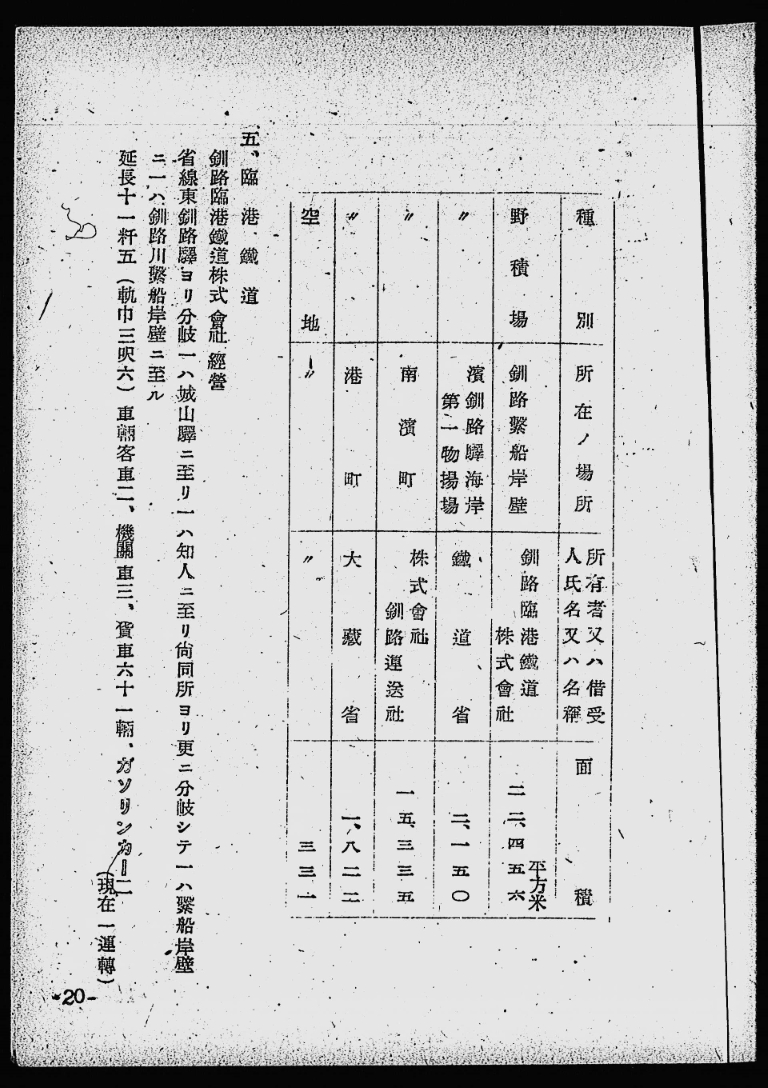 種別
所在ノ場所
所有者又ハ借受
人氏名又ハ名稱
面積
野積場
釧路繫船岸壁
釧路臨港鐵道
株式會社
平方米
二二、四五六
〃
濱釧路驛海岸
第一物揚場
鐵道省
二、一五〇
〃
南濱町
株式會社
釧路運送社
一五、三三五
〃
港町
大藏省
一、八二二
空地
〃
〃
三三一
五、臨港鐵道
釧路臨港鐵道株式會社經營
省線東釧路驛ヨリ分岐一ハ城山驛ニ至リ一ハ知人ニ至リ尙同所ヨリ更ニ分岐シテ一ハ繫船岸壁
ニ一ハ釧路川繫船岸壁ニ至ル
延長十一粁五（軌巾三呎六）車輛客車二、機關車三、貨車六十一輛、ガソリンカー二
（現在一運轉）
-20-